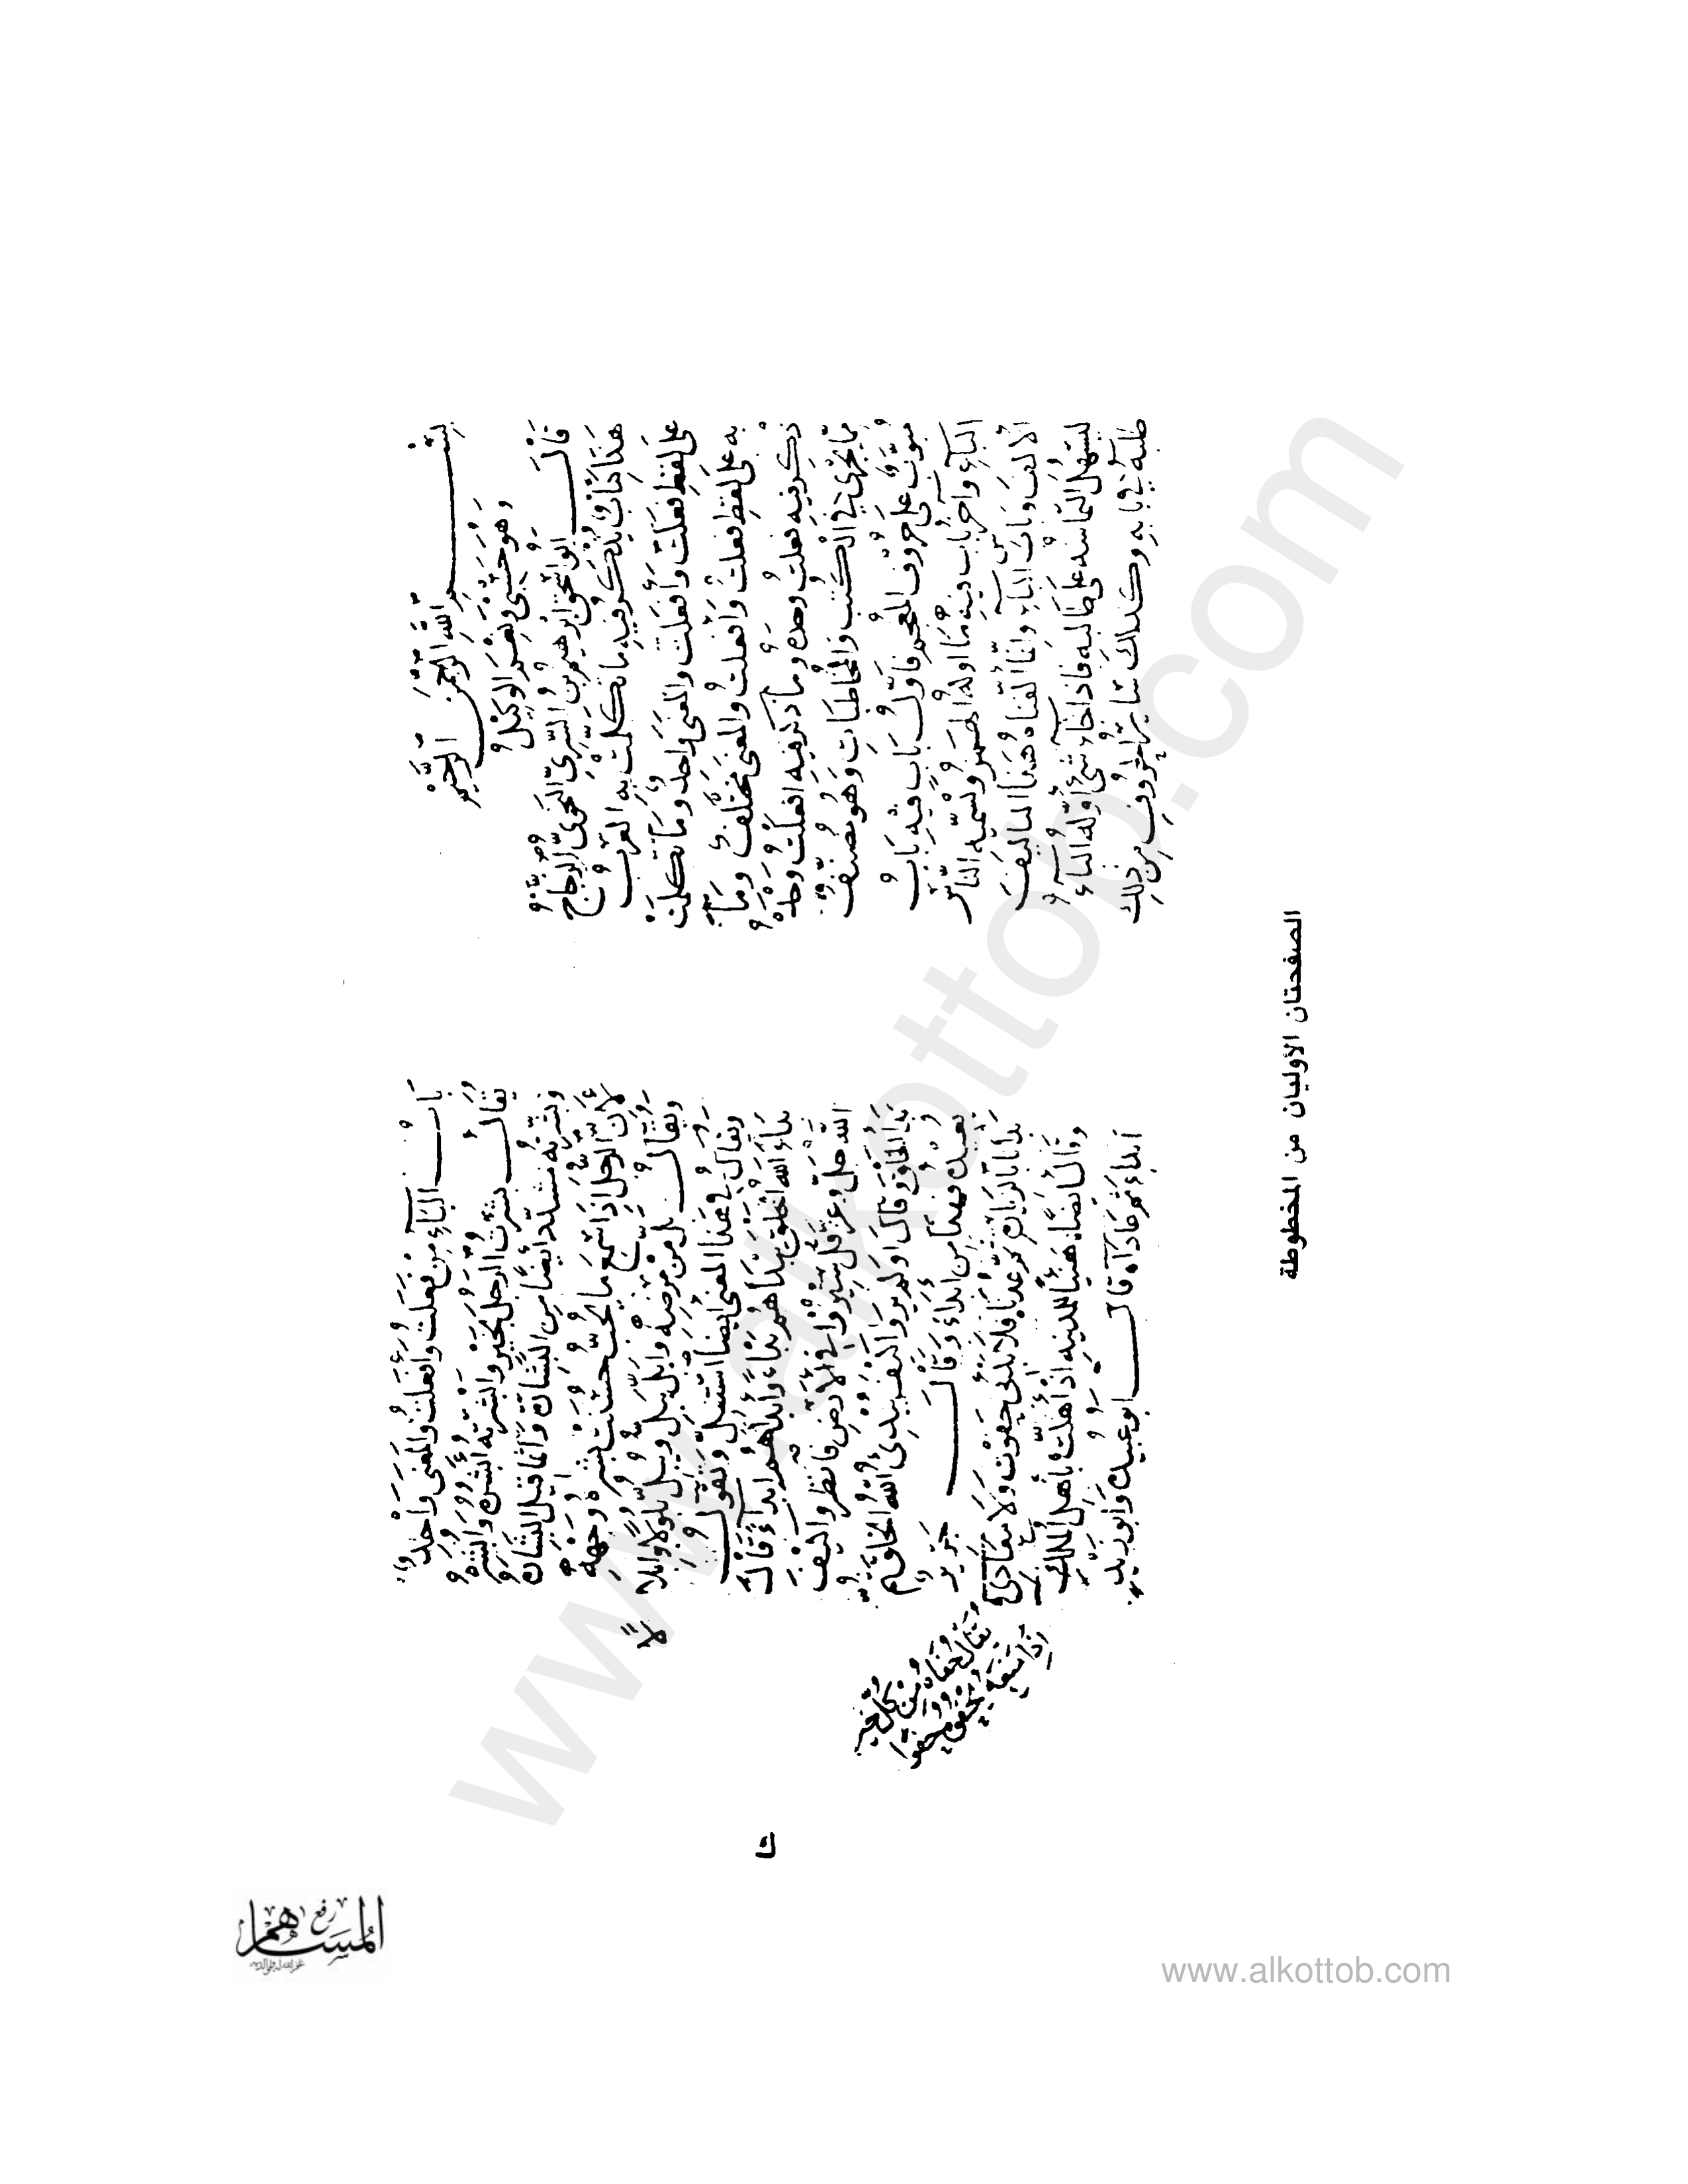 بِسْمِ اللهِ الرَّحْمٰنِ الرَّحِيْمِ
وَهُوَ حَسْبِي وَنِعْمَ الوَكِيْلُ
قَالَ أبو اسحق ابرهيم بن السَّرِيّ النحويّ الزجاج
هَذا كتابٌ نذكر فيه ما تكلمت به العرب
على لفظ فعلت وأفعلت والمعنى واحد وما تكلمت
به على لفظ فعلت وافعلت والمعنى مختلف وما
ذكر فيه فعلت وحده وما ذكر فيه افعلت وحده
مما يجري في الكتب والمخاطبات وهو مصنف
مبوب على حروف المعجم فاول باب فيه باب
الباء وآخر باب فيه ما اوله الهمز وتسميه الناس
الالف وباب الباء وانما الفناه هذا التاليف
ليسهل التماسه على طالبه فاذا جاء شيء اوله الباء
طلبه في بابه وكذلك سائر الحروف من ذلك
باب الباء من فعلت وافعلت والمعنى واحد
يقال بشرت الرجل بخير وابشرته أبشره وابشره
وبشرته مشدد ايضا من البشارة وانما قيل البشارة
لان الرجل اذا سمع ما يحب حسنت بشرة وجهه
ويقال بل من مرضه وابل يبل ويبل بلولا وابلالا
ويقال في هذا المعنى ايضا استبل وتقول
بدأ الله الخلق بدا هم بدءا وأبدأهم ابداء قال
الله جل وعز قل سيروا في الارض فانظروا كيف
بدا الخلق وقال اولم يروا كيف يبدئ الله الخلق ثم
يعيده فهذا من ابداء وقال جرير
وقال ايضا هنيا للمدينه اذ أهلت باهل الملك
أبدأ ثم عادا قال ابو عبيدة وابو زيد
الصفحتان الأوليان من المخطوطة
ث
رفع
المساهم
غفر الله له ولوالديه
www.alkottob.com
www.alkottob.com